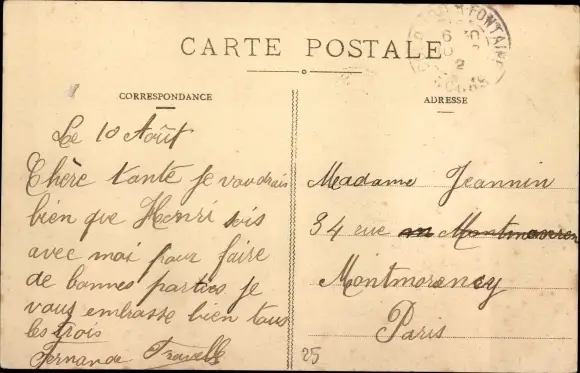 CARTE POSTALE
CORRESPONDANCE
Le 10 Août
Chère tante je voudrais
bien que Henri sois
avec moi pour faire
de bonnes parties je
vous embrasse bien tous
les trois
Fernande
ADRESSE
Madame Jeannin
34 rue
Montmorency
Paris
25